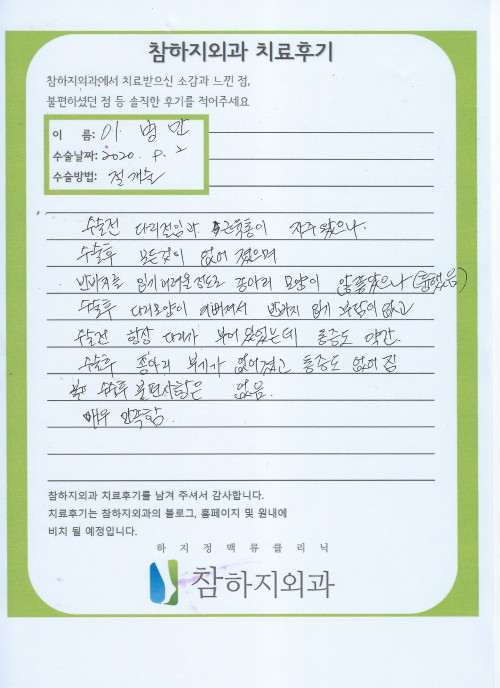 참하지외과 치료후기
참하지외과에서 치료받으신 소감과 느낀 점,
불편하셨던 점 등 솔직한 후기를 적어주세요
이 름: 이 병 만
수술날짜: 2020. 8. 2
수술방법: 절개술
수술전 다리절임과 근육통이 자주 왔으나.
수술후 모든것이 없어 졌으며
반바지를 입기 어려울정도로 종아리 모양이 않좋았으나 (흉했음)
수술후 다리모양이 이뻐져서 반바지 입기 부담이 없고
수술전 항상 다리가 부어 있었는데 통증도 약간.
수술후 종아리 부기가 없어졌고 통증도 없어 짐
수술후 불편사항은 없음.
매우 만족함.
참하지외과 치료후기를 남겨 주셔서 감사합니다.
치료후기는 참하지외과의 블로그, 홈페이지 및 원내에
비치 될 예정입니다.
하지정맥류클리닉
참하지외과